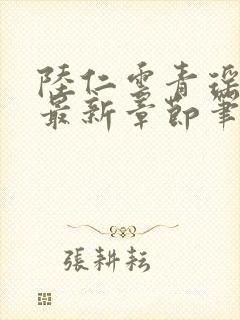 陸仁雲青瑶
最新章節筆
張耕耘